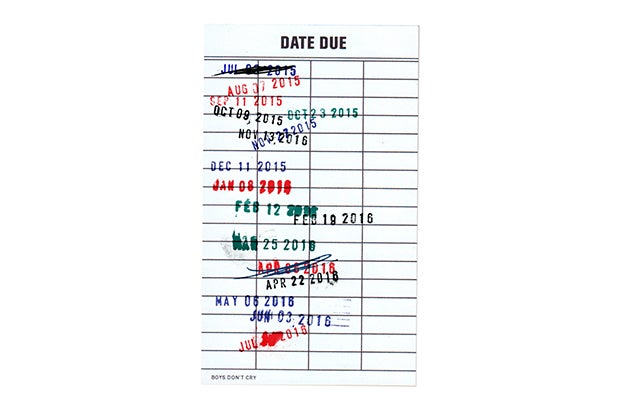 DATE DUE
JUL 2015
AUG 07 2015
SEP 11 2015
OCT 09 2015
OCT 23 2015
NOV 13 2016
NOV 27 2015
DEC 11 2015
JAN 08 2016
FEB 12
FEB 19 2016
MAR 25 2016
APR 2016
APR 22 2016
MAY 06 2016
JUN 03 2016
JUL 2016
BOYS DON'T CRY